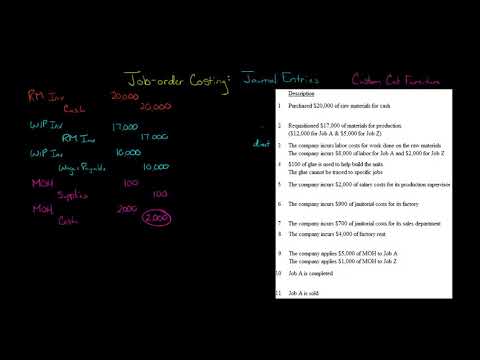 Job-order Costing: Journal Entries Custom Cut Furniture
RM Inv 20,000
Cash 20,000
WIP Inv 17,000
RM Inv 17,000
WIP Inv 10,000
Wages Payable 10,000
MOH 100
Supplies 100
MOH 2000
Cash 2,000
direct
Description
1 Purchased $20,000 of raw materials for cash
2 Requisitioned $17,000 of materials for production
($12,000 for Job A & $5,000 for Job Z)
3 The company incurs labor costs for work done on the raw materials
The company incurs $8,000 of labor for Job A and $2,000 for Job Z
4 $100 of glue is used to help build the units
The glue cannot be traced to specific jobs
5 The company incurs $2,000 of salary costs for its production supervisor
6 The company incurs $900 of janitorial costs for its factory
7 The company incurs $700 of janitorial costs for its sales department
8 The company incurs $4,000 of factory rent
9 The company applies $5,000 of MOH to Job A
The company applies $1,000 of MOH to Job Z
10 Job A is completed
11 Job A is sold